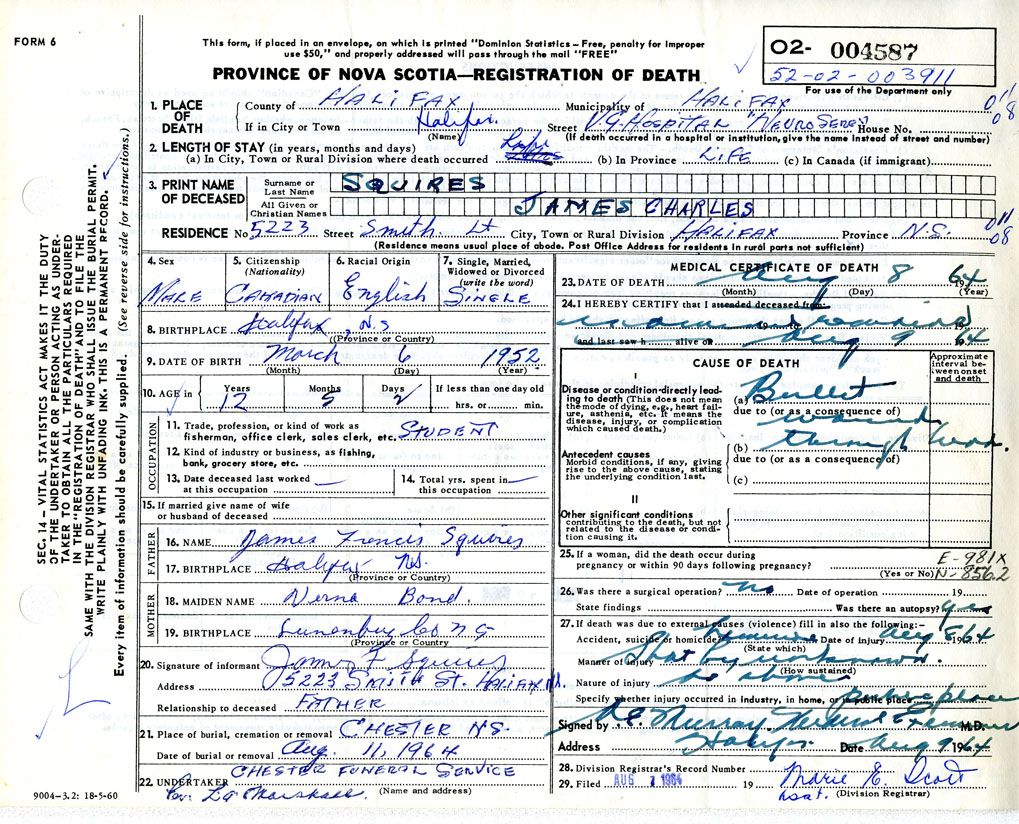 FORM 6
This form, if placed in an envelope, on which is printed "Dominion Statistics – Free, penalty for improper
use $50," and properly addressed will pass through the mail "FREE"
PROVINCE OF NOVA SCOTIA—REGISTRATION OF DEATH
02- 004587
52-02-003911
For use of the Department only
SEC. 14 – VITAL STATISTICS ACT MAKES IT THE DUTY
OF THE UNDERTAKER OR PERSON ACTING AS UNDER-
TAKER TO OBTAIN ALL THE PARTICULARS REQUIRED
IN THE "REGISTRATION OF DEATH" AND TO FILE THE
SAME WITH THE DIVISION REGISTRAR WHO SHALL ISSUE THE BURIAL PERMIT.
WRITE PLAINLY WITH UNFADING INK. THIS IS A PERMANENT RECORD.
Every item of information should be carefully supplied. (See reverse side for instructions.)
1. PLACE OF DEATH
County of HALIFAX Municipality of HALIFAX 011 08
If in City or Town Halifax. Street V.G. HOSPITAL "NEURO House No.
(Name) (If death occurred in a hospital or institution, give the name instead of street and number)
2. LENGTH OF STAY (in years, months and days)
(a) In City, Town or Rural Division where death occurred Life (b) In Province LIFE (c) In Canada (if immigrant)
3. PRINT NAME OF DECEASED
Surname or Last Name SQUIRES
All Given or Christian Names JAMES CHARLES
RESIDENCE No 5223 Street Smith St City, Town or Rural Division HALIFAX Province N.S. 011 08
(Residence means usual place of abode. Post Office Address for residents in rural parts not sufficient)
4. Sex MALE
5. Citizenship (Nationality) CANADIAN
6. Racial Origin English
7. Single, Married, Widowed or Divorced (write the word) SINGLE
8. BIRTHPLACE Halifax, N.S
(Province or Country)
9. DATE OF BIRTH March 6 1952
(Month) (Day) (Year)
10. AGE in Years 12 Months 5 Days 2 If less than one day old hrs. or min.
OCCUPATION
11. Trade, profession, or kind of work as
fisherman, office clerk, sales clerk, etc. STUDENT
12. Kind of industry or business, as fishing,
bank, grocery store, etc.
13. Date deceased last worked
at this occupation
14. Total yrs. spent in
this occupation
15. If married give name of wife
or husband of deceased
FATHER
16. NAME James Francis Squires
17. BIRTHPLACE Halifax N.S.
(Province or Country)
MOTHER
18. MAIDEN NAME Verna Bond.
19. BIRTHPLACE Lunenburg Co N S
(Province or Country)
20. Signature of informant James F Squires
Address 5223 SMITH ST. HALIFAX N.S.
Relationship to deceased FATHER
21. Place of burial, cremation or removal CHESTER N.S.
Date of burial or removal Aug. 11, 1964
22. UNDERTAKER CHESTER FUNERAL SERVICE
Per. L.A. Marshall.
(Name and address)
9004–3.2: 18-5-60
MEDICAL CERTIFICATE OF DEATH
23. DATE OF DEATH Aug 8 1964
(Month) (Day) (Year)
24. I HEREBY CERTIFY that I attended deceased from:
19 to 19
and last saw h alive on Aug 9 1964
CAUSE OF DEATH
Approximate interval between onset and death
I
Disease or condition directly lead-
ing to death (This does not mean
the mode of dying, e.g., heart fail-
ure, asthenia, etc. It means the
disease, injury, or complication
which caused death.)
(a) Bullet
due to (or as a consequence of)
wound
(b) through
due to (or as a consequence of)
(c)
Antecedent causes
Morbid conditions, if any, giving
rise to the above cause, stating
the underlying condition last.
II
Other significant conditions
contributing to the death, but not
related to the disease or condi-
tion causing it.
25. If a woman, did the death occur during
pregnancy or within 90 days following pregnancy?
(Yes or No)
E-981X
N-856.2
26. Was there a surgical operation? no Date of operation 19
State findings Was there an autopsy? yes
27. If death was due to external causes (violence) fill in also the following:–
Accident, suicide or homicide? Date of injury Aug 8 1964
(State which)
Manner of injury Shot by unknown.
(How sustained)
Nature of injury As above
Specify whether injury occurred in industry, in home, or in public place public place
Signed by Murray Medical Examiner M.D.
Address Halifax Date Aug 9 1964
28. Division Registrar's Record Number
29. Filed AUG 1964 19 Marie E. Scott
Asst. (Division Registrar)